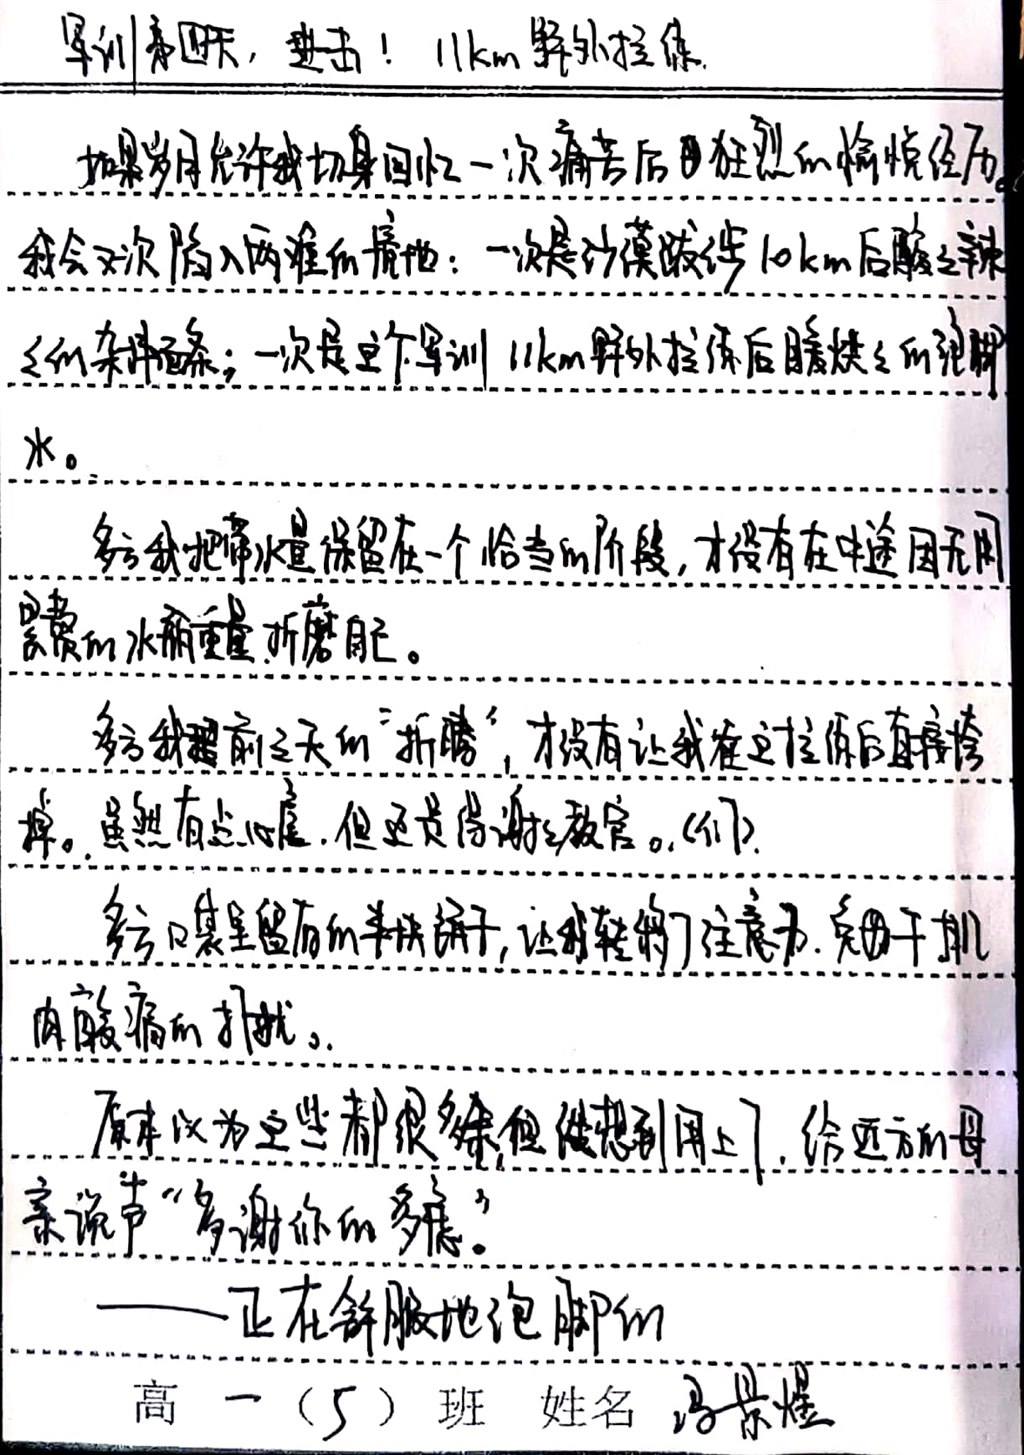 军训第四天，进击！11km野外拉练.
如果岁月允许我切身回忆一次痛苦后狂烈的愉悦经历。
我会又次陷入两难的境地：一次是沙漠跋涉10km后酸之辣
之的杂酱面条；一次是这个军训11km野外拉练后暖烘之的泡脚
水。
多亏我把带水量保留在一个恰当的阶段，才没有在中途因无用
累赘的水瓶重量折磨自己。
多亏我提前之天的“折腾”，才没有让我在这拉练后直接垮
掉。虽然有点心虚.但还是得谢之教官。(们).
多亏口袋里留有的半块饼子，让我转移了注意力.免由于肌
肉酸痛的扑扰。
原本以为这些都很多余但没想到用上了.给远方的母
亲说声“多谢你的多虑”。
——正在舒服地泡脚的
高一（5）班 姓名 冯景煜